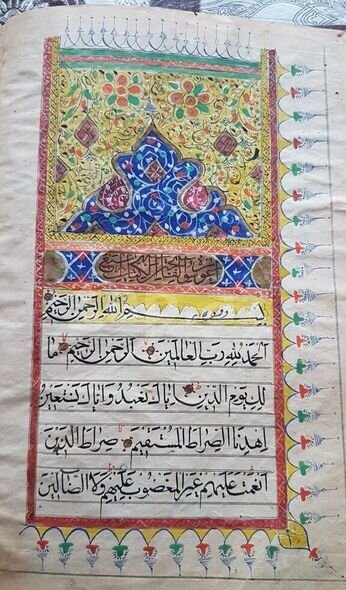 بسم الله الرحمن الرحيم
الحمد لله رب العالمين الرحمن الرحيم ما
لك يوم الدين اياك نعبد واياك نستعين
اهدنا الصراط المستقيم صراط الذين
انعمت عليهم غير المغضوب عليهم ولا الضالين